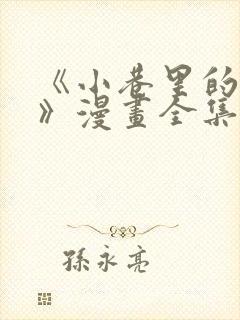 《小巷里的
》漫畫全集
孫永亮